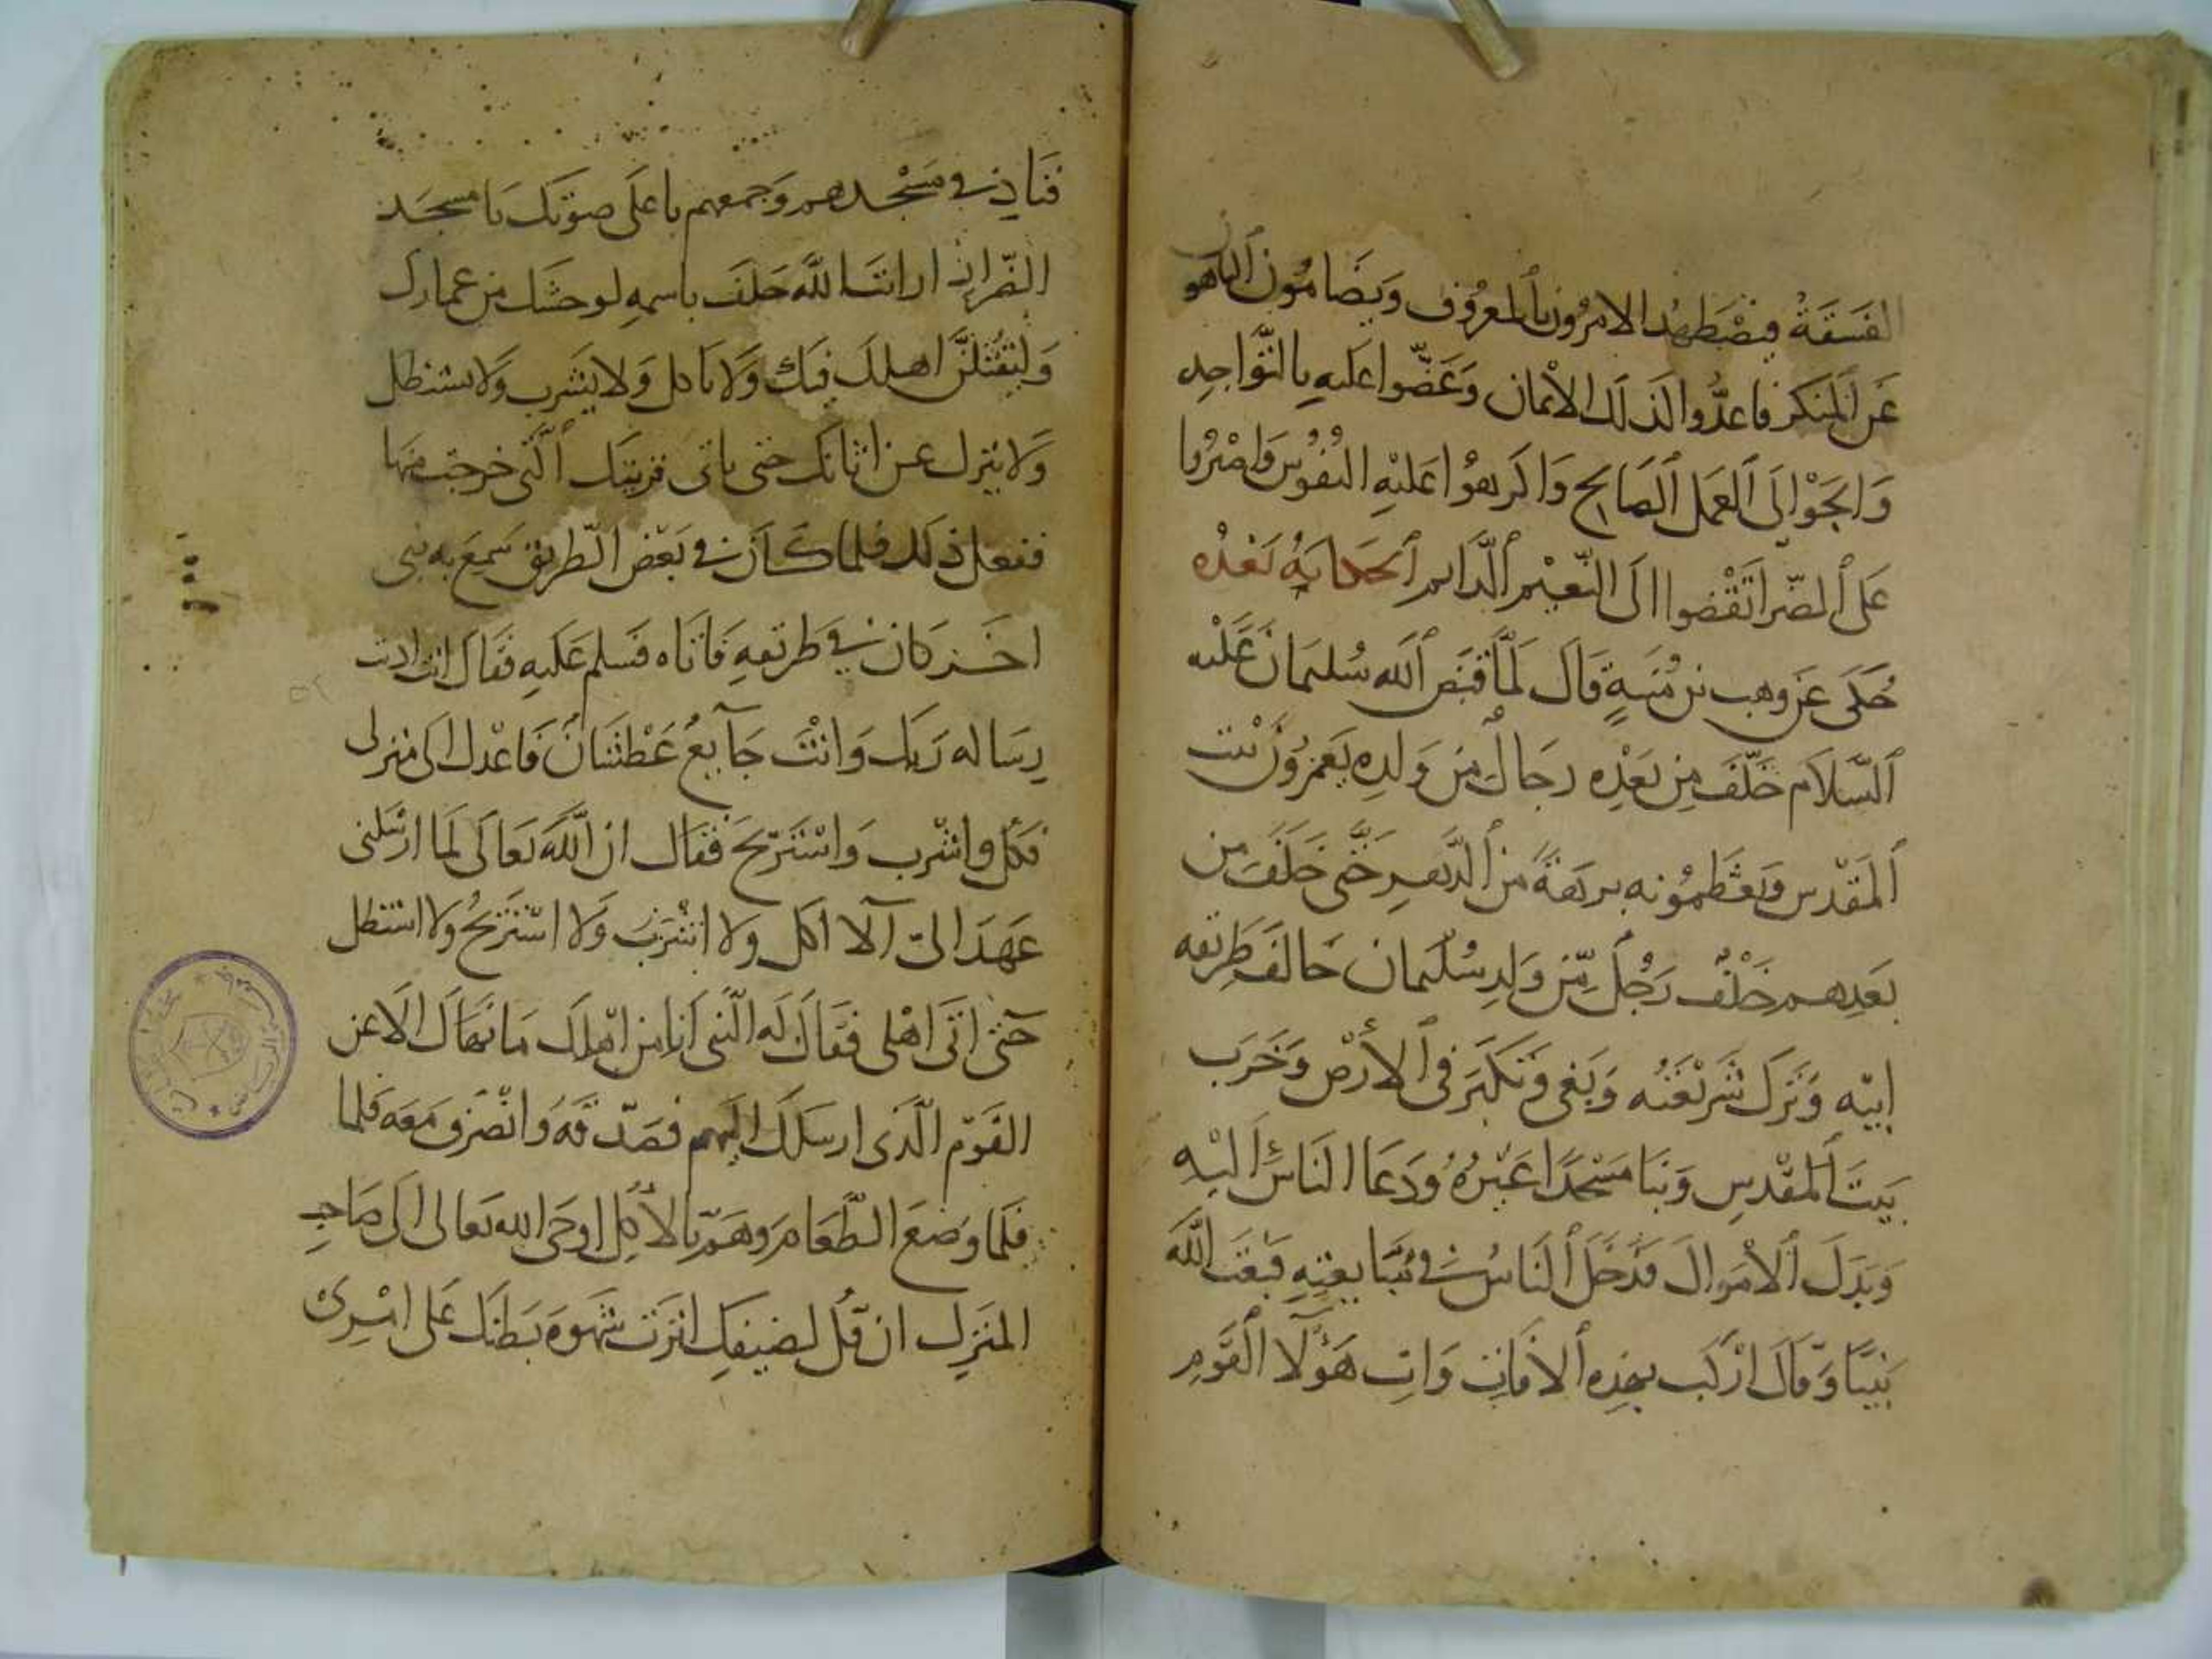 الفسقة فيضطهد الامرون بالمعروف ويضامون الناهو
عن المنكر فاعدوا لذلك الايمان وعضوا عليه بالنواجد
والجوا الى العمل الصالح واكرهوا عليه النفوس واصبروا
على الضر اتقضوا الى النعيم الدايم الحكاية بعده
حكى عن وهب بن منبه قال لما قبض الله سليمان عليه
السلام خلف من بعده رجال من ولده يعمرون بيت
المقدس ويعظمونه برهة من الدهر حتى خلف من
بعدهم خلف رجل من ولد سليمان خالف طريقه
ابيه وترك شريعته وبغى وتكبر في الأرض وخرب
بيت المقدس وبنا مسجدا غيره ودعا الناس اليه
وبدل الأموال فدخل الناس في مبايعته فبعث الله
نبيا وقال اركب بهذه الاتان وات هؤلا القوم
فناد في مسجدهم وجمعهم باعلى صوتك يا مسجد
الضرار ان الله حلف باسمه لوحشك من عمارك
وليقتلن اهلك فيك ولا تاكل ولا يشرب ولا يستظل
ولا ينزل عن اتانك حتى ياتى قريتك التي خرجت منها
ففعل ذلك فلما كان في بعض الطريق سمع به نبى
اخر كان في طريقه فاتاه فسلم عليه فقال انت اديت
رساله ربك وانت جآيع عطشان فاعدل الى منزلى
فكل واشرب واستريح فقال ان الله تعالى لما ارسلنى
عهد الى آلا اكل ولا اشرب ولا استريح ولا استظل
حتى اتى اهلى فقال له النبى أنا من اهلك ما نهاك الا عن
القوم الذى ارسلك اليهم فصدقه وانصرف معه فلما
فلما وضع الطعام وهم بالأكل اوحى الله تعالى الى صاحب
المنزل ان قل لضيفك اثرت شهوة بطنك على امرى